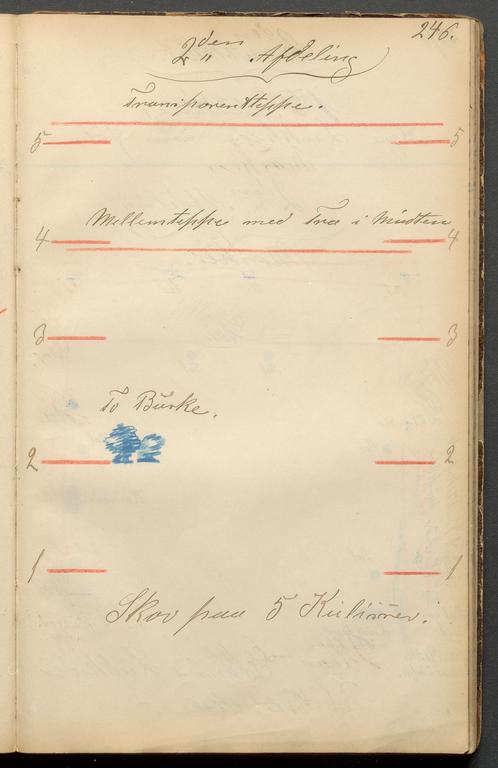 246.
2den Afdeling
Transparenttæppe.
5 5
Mellemtæppe med Træ i Midten
4 4
3 3
To Buske.
2 2
1 1
Skov paa 5 Kulisser.